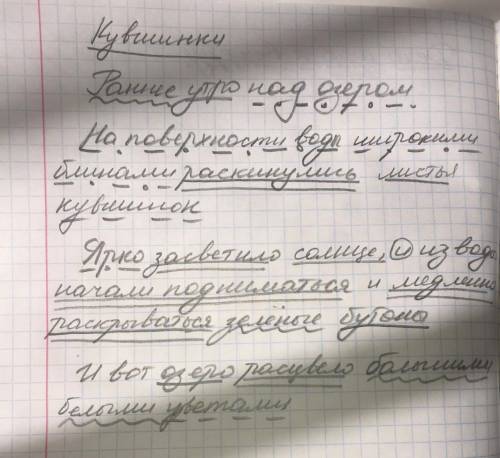 Кувшинки
Раннее утро над озером.
На поверхности воды широкими
блинами раскинулись листья
кувшинок
Ярко засветило солнце, и из воды
начали подниматься и медленно
раскрываться зелёные бутоны
И вот озеро расцвело большими
белыми цветами